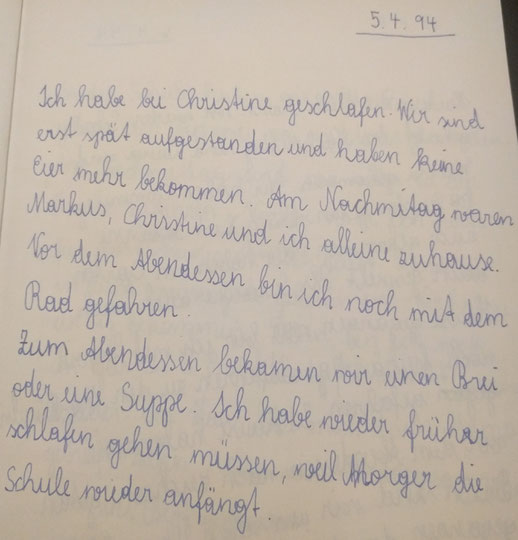 5.4.94
Ich habe bei Christine geschlafen. Wir sind
erst spät aufgestanden und haben keine
Eier mehr bekommen. Am Nachmitag waren
Markus, Christine und ich alleine zuhause.
Vor dem Abendessen bin ich noch mit dem
Rad gefahren.
Zum Abendessen bekamen wir einen Brei
oder eine Suppe. Ich habe wieder früher
schlafen gehen müssen, weil Morgen die
Schule wieder anfängt.